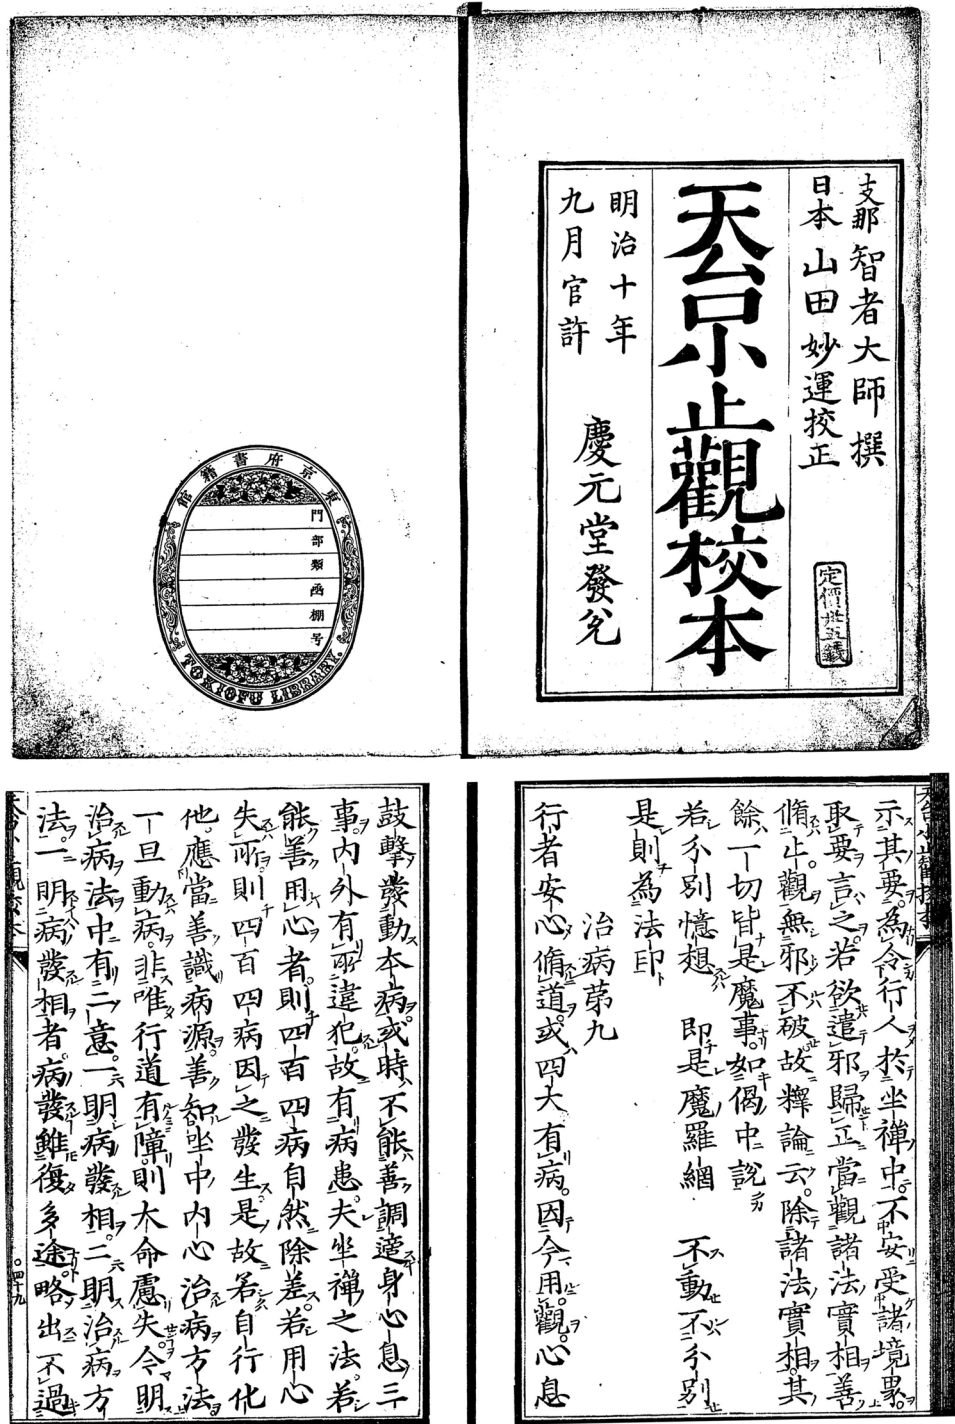 支那 智者大師 撰
日本 山田妙運挍正
定價卅五錢
天台小止觀校本
明治十年
九月官許
慶元堂發兌
東京府書籍館
門
部
類
函
棚
号
TOKIOFU LIBRARY.
示其要。為令行人於坐禪中。不安受諸境界。
取要言之。若欲遣邪歸正。當觀諸法實相。善
脩止觀。無邪不破。故釋論云。除諸法實相。其
餘一切皆是魔事。如偈中説
若分別憶想 即是魔羅網 不動不分別
是則為法印
治病苐九
行者安心脩道。或四大有病。因今用。觀。心息
鼓擊發動本病。或時不能善調適身心息三
事。内外有所違犯。故有病患。夫坐禪之法。若
能善用心者。則四百四病自然除差。若用心
失所。則四百四病因之發生。是故若自行化
他。應當善識病源。善知坐中内心治病方法。
一旦動病。非唯行道有障。則大命慮失。今明
治病法中有二意。一明病發相。二明治病方
法。一明病發相者。病發雖復多途。略出不過
天台小止觀挍本
〇四十九